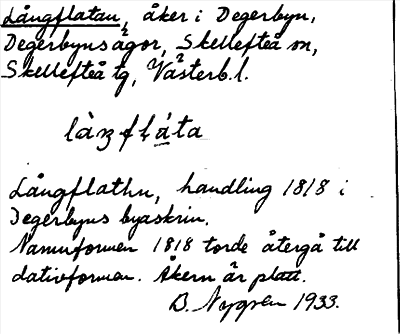 Långflatan, åker i Degerbyn,
Degerbyns ägor, Skellefteå sn,
Skellefteå tg, Västerb.l.
Långflathn, handling 1818 i
Degerbyns byaskrin.
Namnformen 1818 torde återgå till
dativformen. Åkern är platt.
B. Nygren 1933.